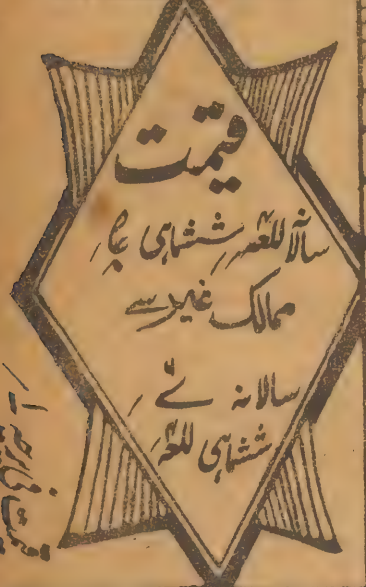 قیمت
سالانہ للعہ ششماہی عہ
ممالک غیر سے
سالانہ
ششماہی للعہ